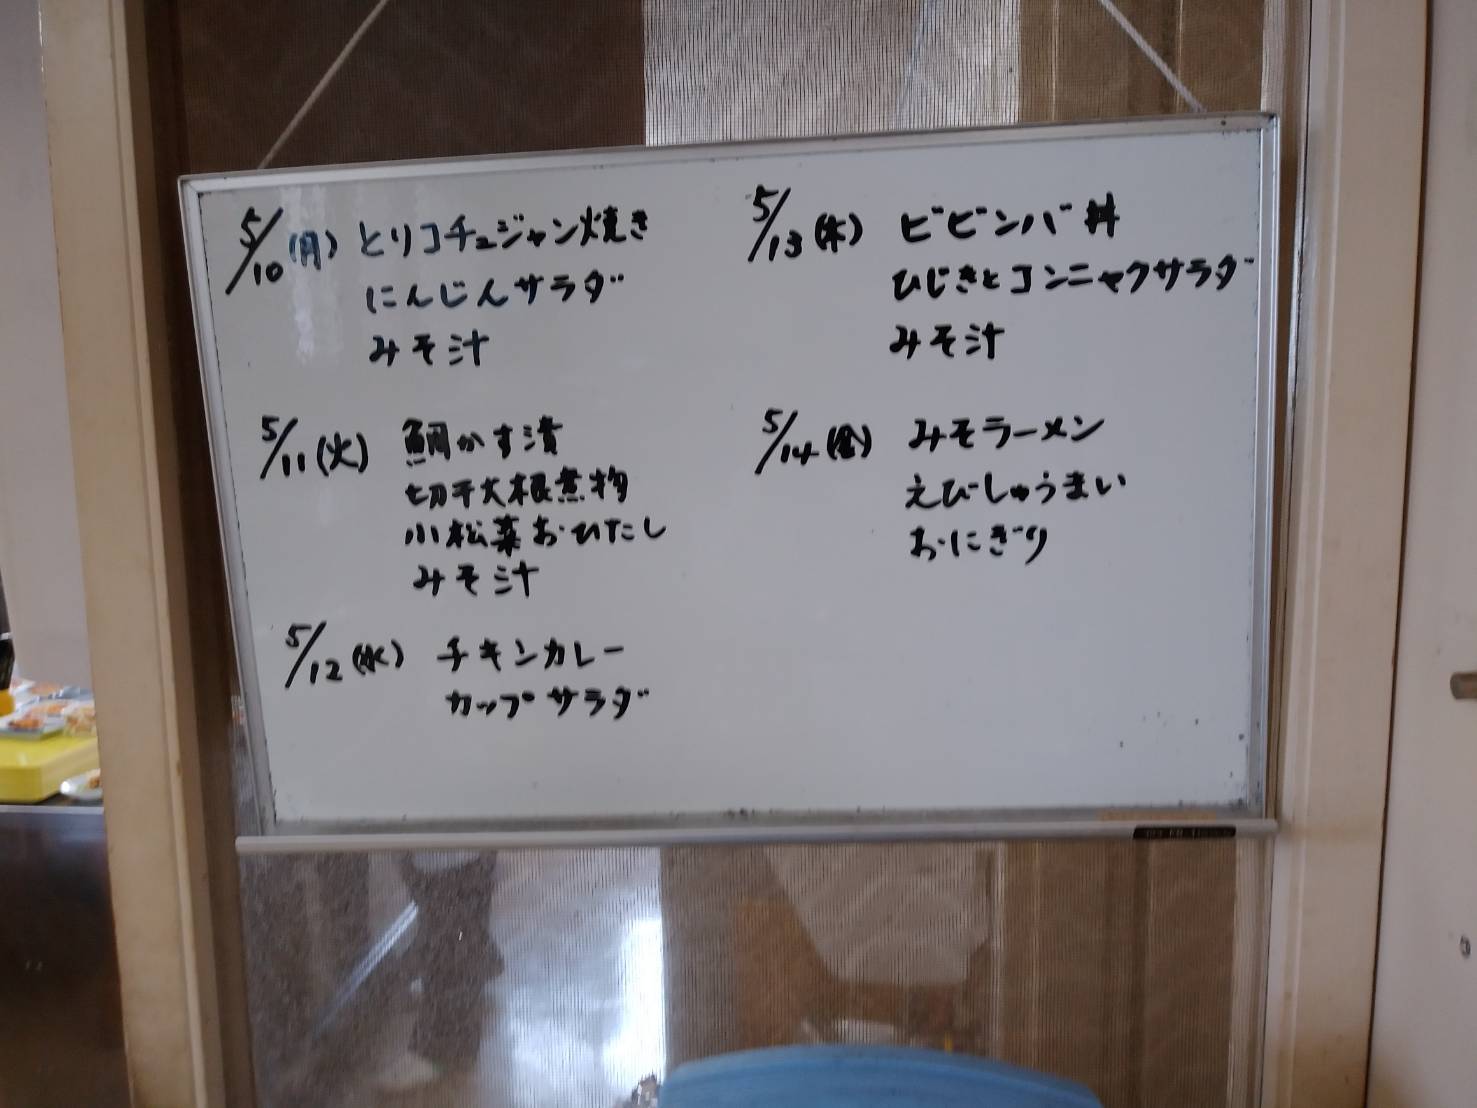 5/10(月) とりコチュジャン焼き
にんじんサラダ
みそ汁
5/11(火) 鯛かす漬
切干大根煮物
小松菜おひたし
みそ汁
5/12(水) チキンカレー
カップサラダ
5/13(木) ビビンバ丼
ひじきとコンニャクサラダ
みそ汁
5/14(金) みそラーメン
えびしゅうまい
おにぎり